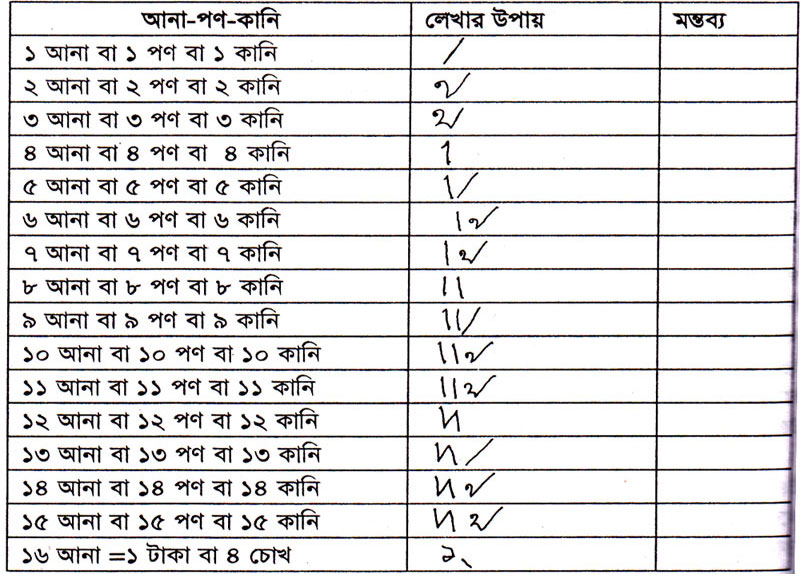 আনা-পণ-কানি লেখার উপায় মন্তব্য
১ আনা বা ১ পণ বা ১ কানি /
২ আনা বা ২ পণ বা ২ কানি
৩ আনা বা ৩ পণ বা ৩ কানি
৪ আনা বা ৪ পণ বা ৪ কানি
৫ আনা বা ৫ পণ বা ৫ কানি
৬ আনা বা ৬ পণ বা ৬ কানি
৭ আনা বা ৭ পণ বা ৭ কানি
৮ আনা বা ৮ পণ বা ৮ কানি
৯ আনা বা ৯ পণ বা ৯ কানি
১০ আনা বা ১০ পণ বা ১০ কানি
১১ আনা বা ১১ পণ বা ১১ কানি
১২ আনা বা ১২ পণ বা ১২ কানি
১৩ আনা বা ১৩ পণ বা ১৩ কানি
১৪ আনা বা ১৪ পণ বা ১৪ কানি
১৫ আনা বা ১৫ পণ বা ১৫ কানি
১৬ আনা =১ টাকা বা ৪ চোখ